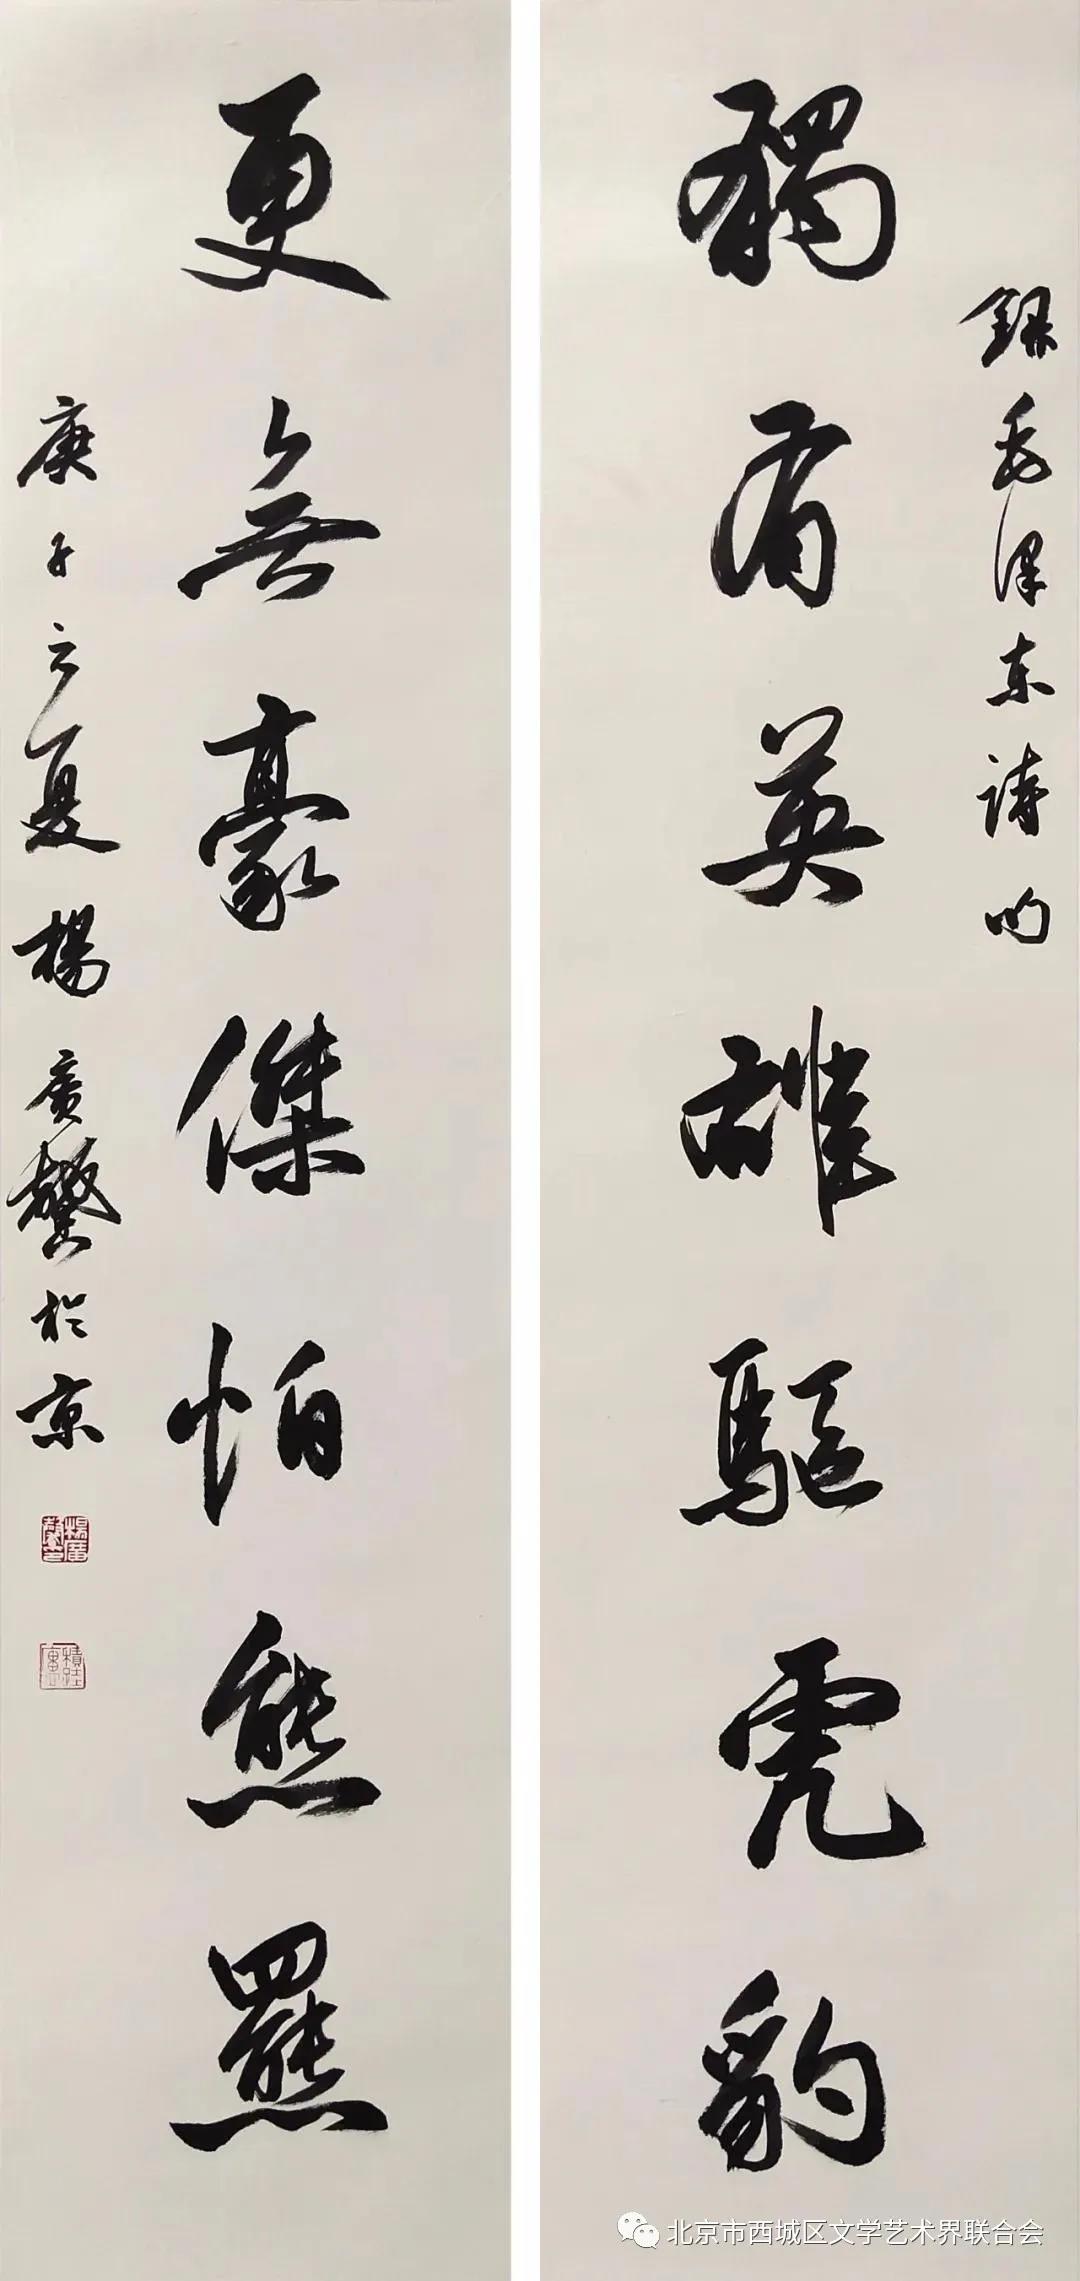 録毛澤东詩句
獨有英雄驅虎豹
更無豪傑怕熊羆
庚子之夏楊廣馨於京
楊廣馨印
北京市西城区文学艺术界联合会